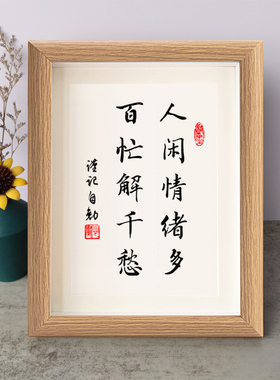 人闲情绪多
百忙解千愁
谨记自勉